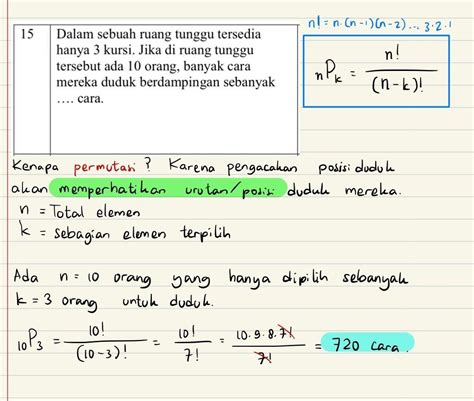 n! = n.(n-1)(n-2)... 3.2.1
15
Dalam sebuah ruang tunggu tersedia
hanya 3 kursi. Jika di ruang tunggu
tersebut ada 10 orang, banyak cara
mereka duduk berdampingan sebanyak
.... cara.
nPk = n! / (n-k)!
Kenapa permutasi ? Karena pengacakan posisi duduk
akan memperhatikan urutan/posisi duduk mereka.
n = Total elemen
k = sebagian elemen terpilih
Ada n = 10 orang yang hanya dipilih sebanyak
k = 3 orang untuk duduk.
10P3 = 10! / (10-3)! = 10! / 7! = 10.9.8.7! / 7! = 720 cara.